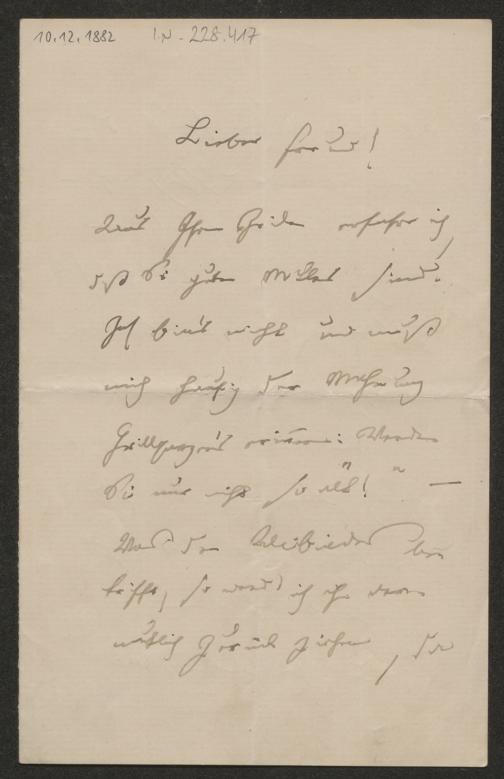 10.12.1882 I.N-228.417
Lieber Freund!
Aus Ihren Zeilen erfahre ich,
daß Sie guten Muthes sind.
Ich bin's nicht und muß
mich häufig der Mahnung
Grillparzer's erinnern: Werden
Sie nur nicht so "alt!" —
Was den be
trifft, so werd' ich ihn ver
muthlich zurück ziehen, da